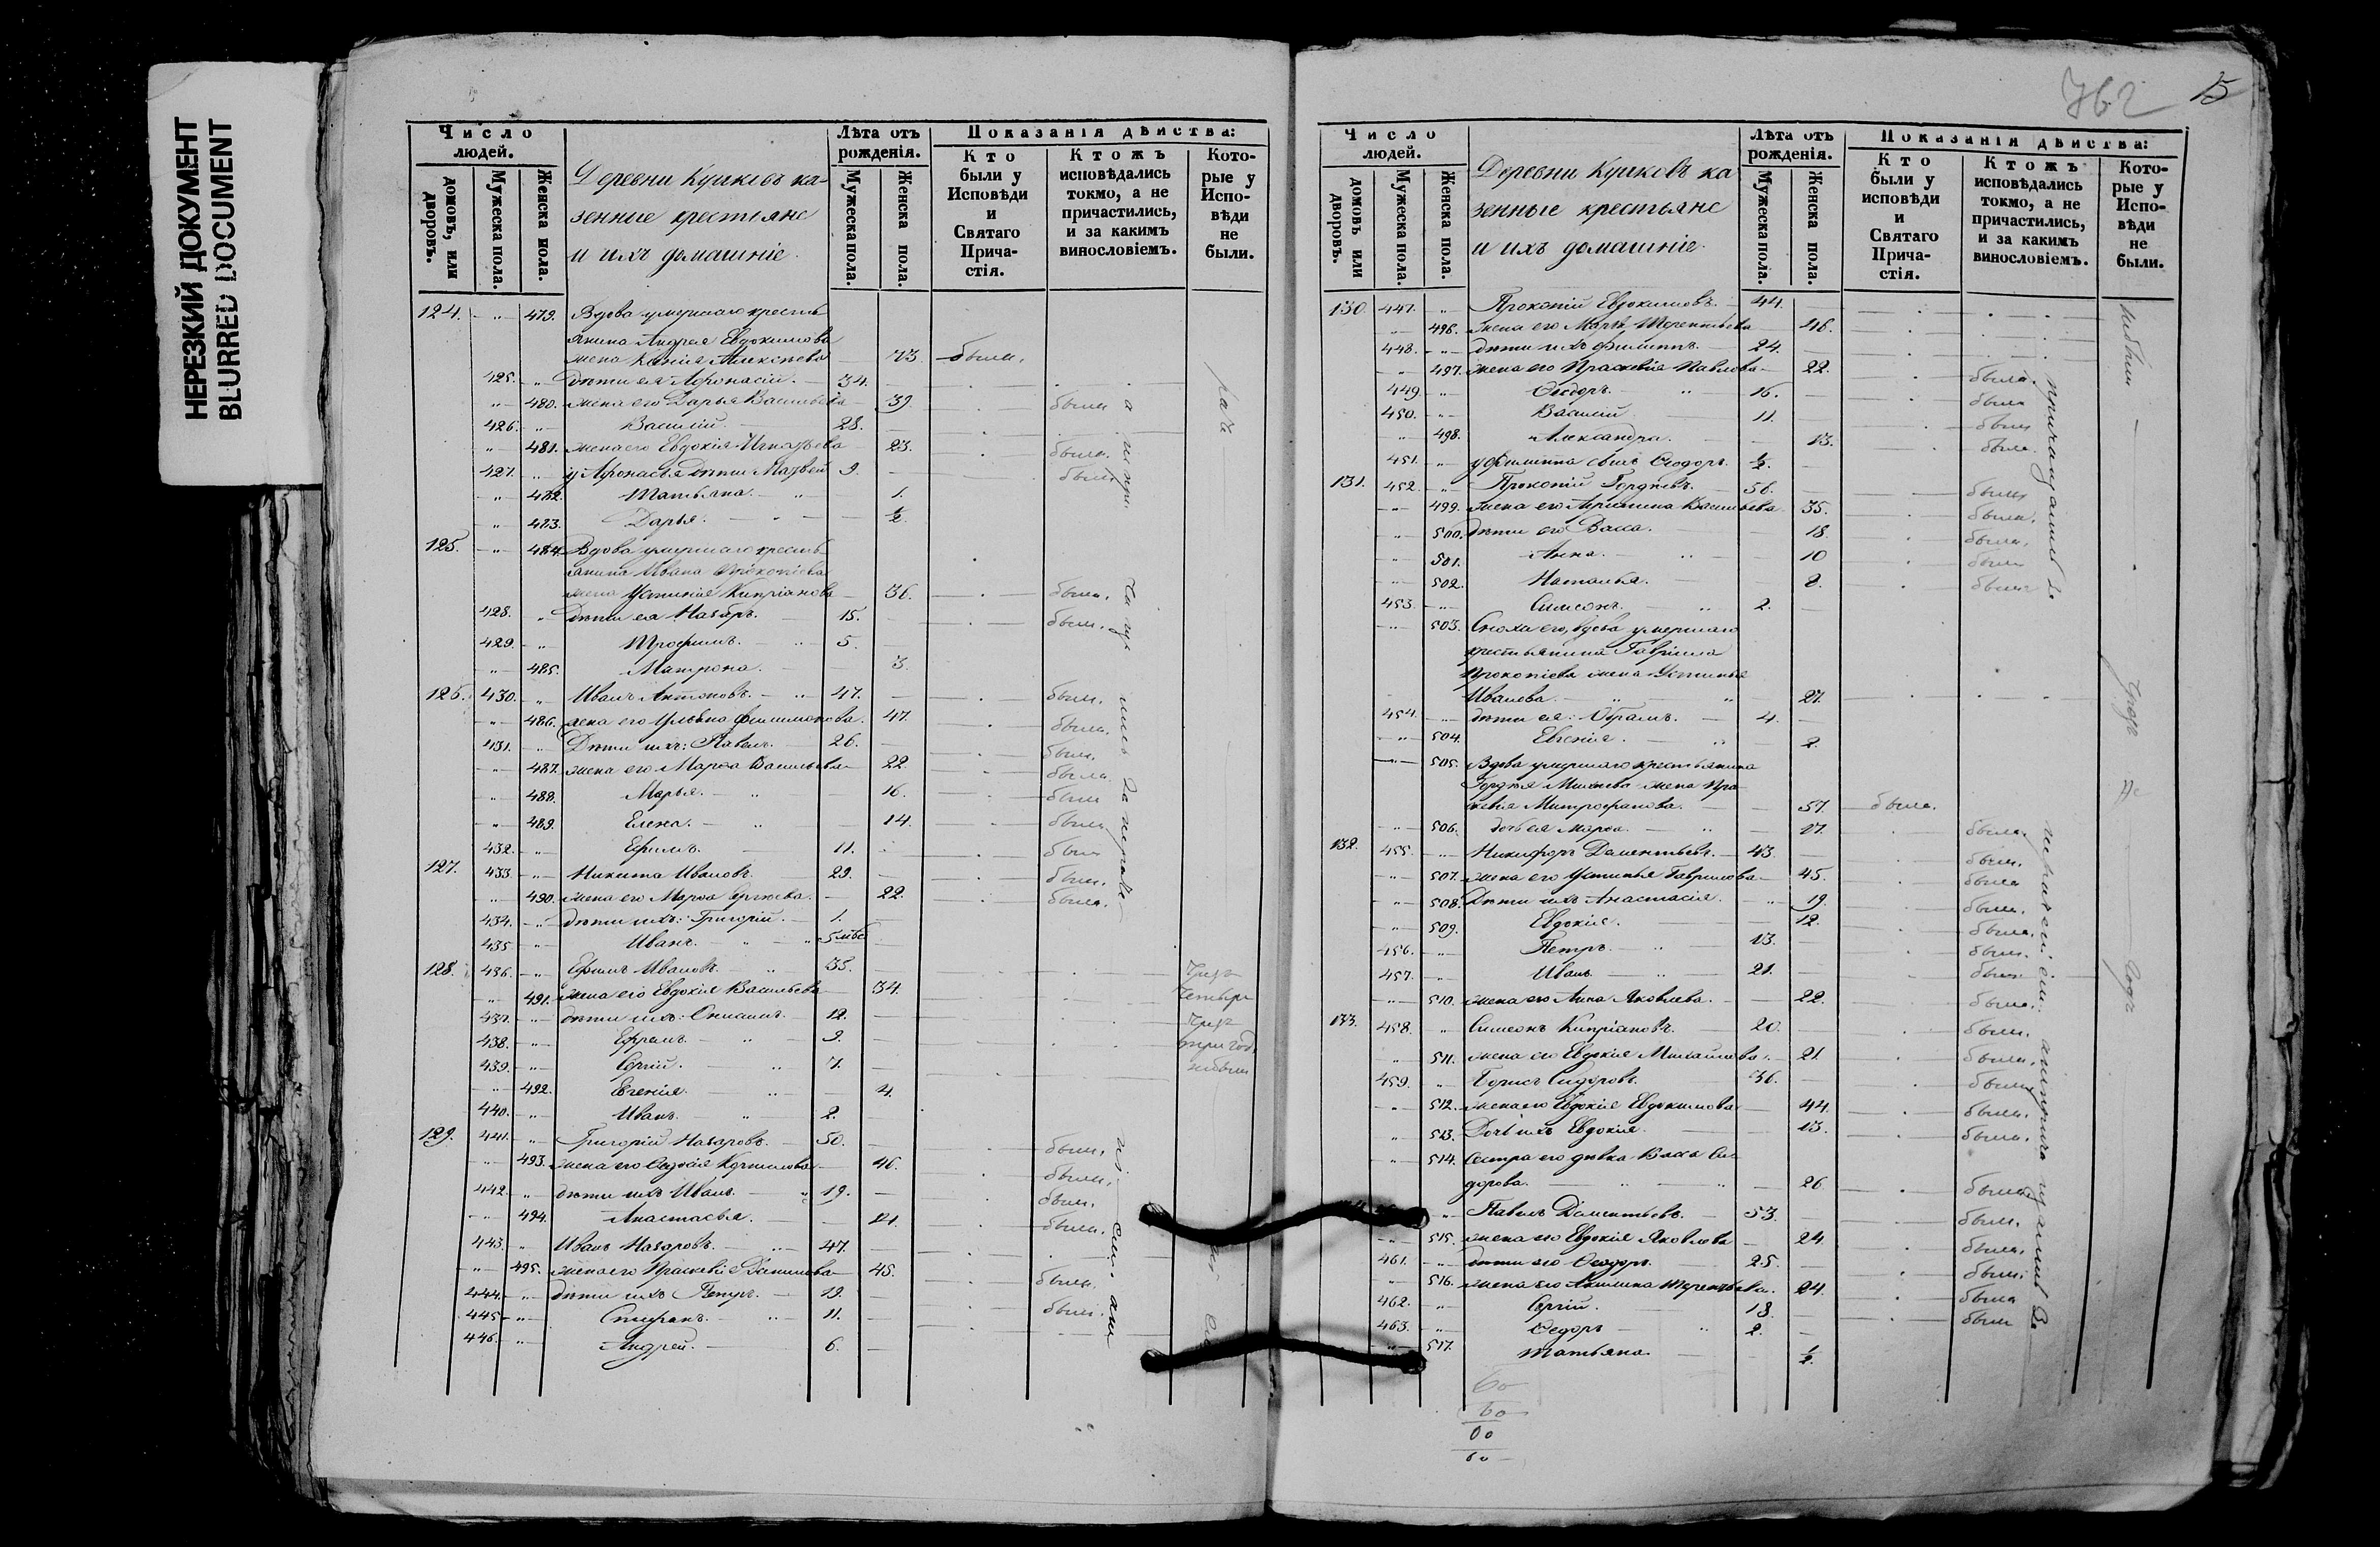 НЕРЕЗКИЙ ДОКУМЕНТ
BLURRED DOCUMENT
Число людей.
домовъ, или дворовъ.
Мужеска пола.
Женска пола.
Деревни Кушковъ ка-
зенные крестьяне
и ихъ домашніе.
Лѣта отъ рожденія.
Мужеска пола.
Женска пола.
Показанія дѣйства:
Кто были у Исповѣди и Святаго Причастія.
Ктожъ исповѣдались токмо, а не причастились, и за какимъ винословіемъ.
Которые у Исповѣди не были.
124. 479. Вдова умершаго кресть
янина Андрея Евдокимова
жена Алексѣева 73. были.
425. Дѣти ея Афонасій. 34.
480. жена его Дарья Васильева 39. были
426. Василій. 28.
481. жена его Евдокія Игнатьева 23. была.
427. у Афонасья дѣти Матвей 9. были
482. Татьяна. 1.
483. Дарья. ½
125. 484. Вдова умершаго кресть
янина Ивана Прокопіева
жена Устинія Кипріанова 36. была.
428. Дѣти ея Назаръ. 15. были.
429. Трофимъ. 5.
485. Матрона. 3.
126. 430. Иванъ Антоновъ. 47. были.
486. жена его Ульяна Филимонова. 47. была.
431. Дѣти ихъ: Павелъ. 26. были.
487. жена его Марфа Васильева 22. была
488. Марья. 16. были
489. Елена. 14. была
432. Ефимъ. 11. были
127. 433. Никита Ивановъ. 29. были.
490. жена его Марфа Сергѣева. 22. была.
434. дѣти ихъ: Григорій. 1.
435 Иванъ. 5 мѣс
128. 436. Ефимъ Ивановъ. 35.
491. жена его Евдокія Васильева 34.
437. дѣти ихъ: Онисимъ. 12.
438. Ефремъ. 9.
439. Сергій. 7.
492. Евгенія. 4.
440. Иванъ. 2.
129. 441. Григорій Назаровъ. 50. были.
493. жена его Корнилова. 46. были.
442. дѣти ихъ Иванъ. 19. были.
494. Анастасья. 21. была.
443. Иванъ Назаровъ. 47.
495. жена его Праскевія Данилова 45. была.
444. дѣти ихъ Петръ. 12. были.
445 Стефанъ. 11.
446. Андрей. 6.
762
15
Число людей.
домовъ или дворовъ.
Мужеска пола.
Женска пола.
Деревни Кушковъ ка
зенные крестьяне
и ихъ домашніе.
Лѣта отъ рожденія.
Мужеска пола.
Женска пола.
Показанія дѣйства:
Кто были у исповѣди и Святаго Причастія.
Ктожъ исповѣдались токмо, а не причастились, и за какимъ винословіемъ.
Которые у Исповѣди не были.
130. 447. Прокопій Евдокимовъ. 44.
496. жена его Марѳа Терентьева 46.
448. дѣти ихъ Филиппъ. 24.
497. жена его Праскевія Павлова 22. была.
449. Ѳеодоръ. 16. были
450. Василій 11. были
498. Александра. 13. была.
451. у Филиппа сынъ Ѳеодоръ. ½.
131. 452. Прокопій Гордѣевъ. 56. были
499. жена его Васильева 35. была.
500. дѣти его Васса. 18. была.
501. Анна. 10 была
502. Наталья. 8. была
453. Симеонъ. 2.
503. Сноха его, вдова умершаго
крестьянина Гавріила
Прокопіева жена Устинья
Иванова. 27.
454. дѣти ея: Абрамъ. 4.
504. Евгенія. 2.
505. Вдова умершаго крестьянина
Гордѣя Михѣева жена Пра
скевія Митрофанова. 57. была.
506. дочь ея Марфа. 17. была.
132. 455. Никифоръ Дементьевъ. 43. были.
507. жена его Устинья Гаврилова 45. была
508. Дѣти ихъ Анастасія. 19. была.
509. Евдокія. 12. была.
456. Петръ. 13. были.
457. Иванъ 21. были
510. жена его Анна Яковлева. 22. была.
133. 458. Симеонъ Кипріановъ. 20. были.
511. жена его Евдокія Михайлова. 21. была.
459. Борисъ Сидоровъ. 36. были
512. жена его Евдокія Евдокимова 44. была.
513. Дочь ихъ Евдокія. 13. была.
514. Сестра его дѣвка Васса Си-
дорова. 26. была
Павелъ Дементьевъ. 53. были.
515. жена его Евдокія Яковлева 24. была.
461. дѣти его Ѳеодоръ. 25. были.
516. жена его Акилина Терентьева. 24. была
462. Сергій. 18. были
463. Ѳедоръ 2.
517. Татьяна. ½.
60
60
60
60